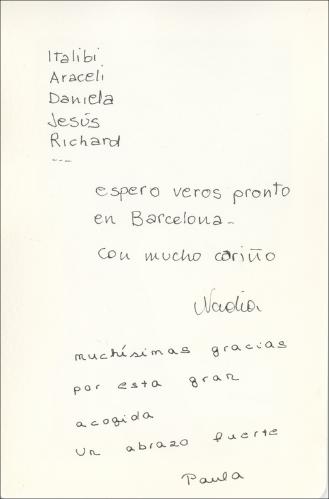 Italibi
Araceli
Daniela
Jesús
Richard
---
espero veros pronto
en Barcelona-
con mucho cariño
Nadia
muchísimas gracias
por esta gran
acogida
un abrazo fuerte
Paula